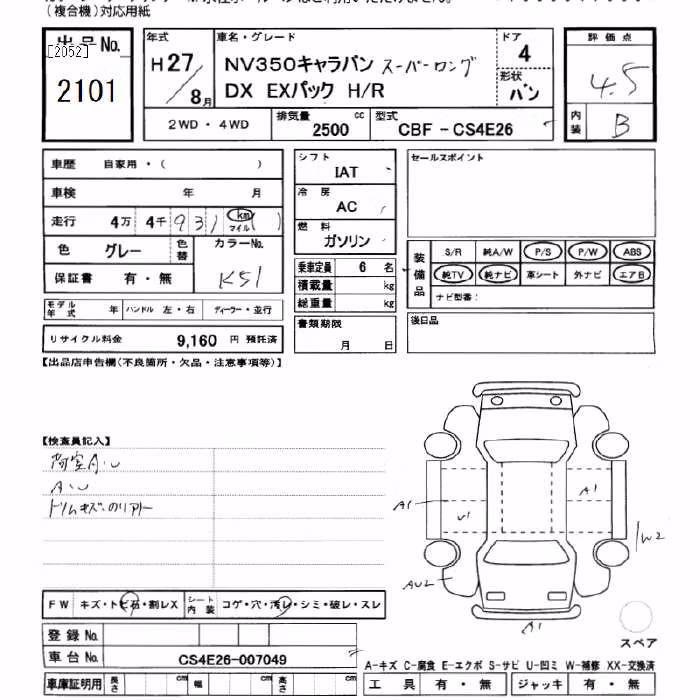 (複合機)対応用紙
出品No.
[2052]
2101
年式
H27/8月
車名・グレード
NV350キャラバン スーパーロング
DX EXパック H/R
ドア
4
形状
バン
評価点
4.5
内装
B
2WD・4WD
排気量
2500
cc
型式
CBF-CS4E26
車歴 自家用・( )
車検 年 月
走行 4万 4千 931 km マイル ( )
色 グレー
色替
カラーNo.
K51
保証書 有・無
モデル年式 年 ハンドル 左・右 ディーラー・並行
リサイクル料金 9,160 円 預託済
シフト
IAT
冷房
AC
燃料
ガソリン
乗車定員 6 名
積載量 kg
総重量 kg
書類期限
月 日
セールスポイント
装備品
S/R 純A/W P/S P/W ABS
純TV 純ナビ 革シート 外ナビ エアB
ナビ型番:
後日品
【出品店申告欄(不良箇所・欠品・注意事項等)】
【検査員記入】
荷室A・U
A・U
トリムキズ・のり
A1
U1
A1
W2
AU2
A1
スペア
FW キズ・トビ石・割レX
シート内装 コゲ・穴・汚レ・シミ・破レ・スレ
登録No.
車台No. CS4E26-007049
車庫証明用 長さ cm 幅 cm 高さ cm
A-キズ C-腐食 E-エクボ S-サビ U-凹ミ W-補修 XX-交換済
工具 有・無 ジャッキ 有・無